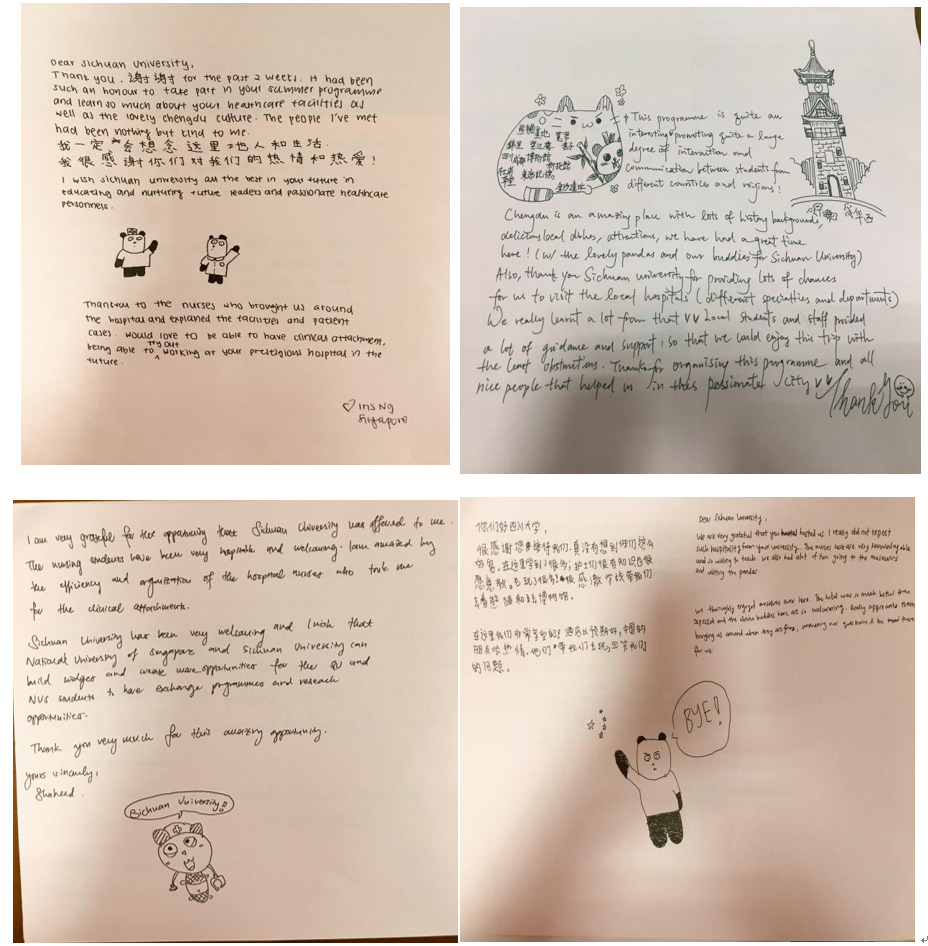 Dear Sichuan University,
Thank you, 谢谢 for the past 2 weeks. It had been
such an honour to take part in your summer programme
and learn so much about your healthcare facilities as
well as the lovely chengdu culture. The people I've met
had been nothing but kind to me.
我一定会想念这里地人和生活.
我很感谢你们对我们的热情和热爱!
I wish sichuan university all the best in your future in
educating and nurturing future leaders and passionate healthcare
personnels.
Thankyou to the nurses who brought us around
the hospital and explained the facilities and patient
cases. would love to be able to have clinical attachment,
being able to try out working at your prestigious hospital in the
future.
♡ Iris Ng
Singapore
This programme is quite an
interesting promoting quite a large
degree of interaction and
communication between students from
different countries and regions!
熊猫基地
博物馆
Chengdu is an amazing place with lots of history backgrounds,
delicious local dishes, attractions, we have had a great time
here! (w/ the lovely pandas and our buddies for Sichuan University)
Also, thank you Sichuan university for providing lots of chances
for us to visit the local hospitals (different specialties and departments)
We really learnt a lot from that ∨∨ Local students and staff provided
a lot of guidance and support, so that we could enjoy this trip with
the least obstructions. Thanks for organising this programme and all
nice people that helped us in this passionate city ∨∨
Thank You
I am very grateful for the opportunity that Sichuan University has offered to me.
The nursing students have been very hospitable and welcoming. I am amazed by
the efficiency and organisation of the hospital nurses who took me
for the clinical attachments.
Sichuan University has been very welcoming and I wish that
National University of Singapore and Sichuan University can
build bridges and create more opportunities for the SU and
NUS students to have exchange programmes and reseach
opportunities.
Thank you very much for this amazing opportunity.
Yours sincerely,
Shaheed.
Sichuan University!!
你们好四川大学,
很感谢您接待我们,真没有想到你们这么
好客。在这里学到了很多;护士们很有知识也很
愿意教。也玩了很多!很感激学校带我们
去看熊猫和去博物馆。
在这里我们非常享受! 酒店比预期好,中国的
朋友很热情,他们带我们去玩,回答我们
的问题。
Dear Sichuan University,
We are very grateful that you hosted us. I really did not expect
such hospitality from your university. The nurses here are very knowledgable
and is willing to teach. We also had a lot of fun going to the museums
and visiting the pandas.
We thoroughly enjoyed ourselves over here. The hotel was so much better than
expected and the chinese buddies here are so welcoming. Really appreciate them
bringing us around when they are free, answering our questions & being there
for us.
BYE!